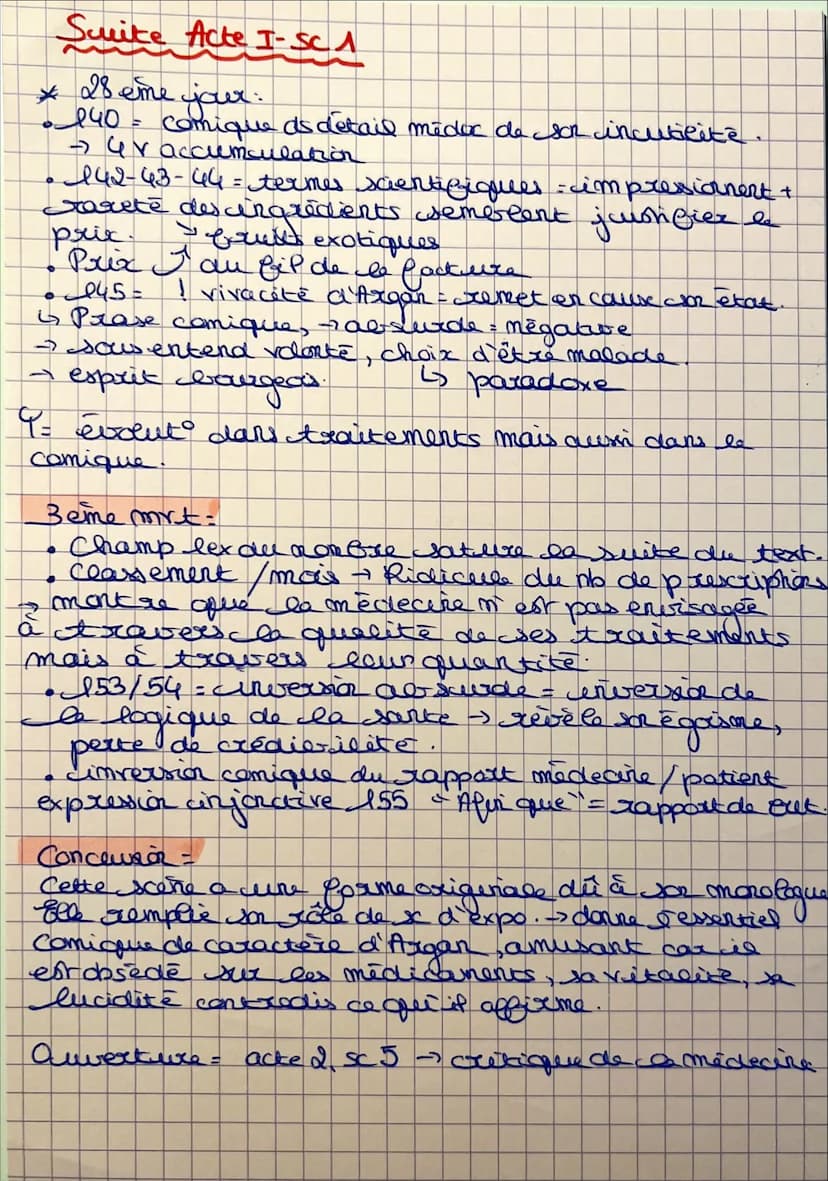 Suite Acte I - SC 1
* 28 ème jour :
• l40 = comique ds détail médoc de son inutilité.
→ 4 v accumulation
• l42-43-44 = termes scientifiques = impressionnent +
rareté des ingrédients semblent justifier le
prix. ↘ fruits exotiques
• Prix ↗ au fil de la facture
• l45 = ! vivacité d'Argan = remet en cause son état.
↳ Prase comique, → absurde = négative
→ sous entend volonté, choix d'être malade.
→ esprit bourgeois. ↳ paradoxe
φ = évolut° dans traitements mais aussi dans le
comique.
3ème mvt =
• Champ lex du nombre sature la suite du text.
• Classement / mois → Ridicule du nb de prescriptions
→ montre que la médecine n'est pas envisagée
à travers la qualité de ses traitements
mais à travers leur quantité.
• l53/54 = inversion absurde = inversion de
la logique de la santé → révèle son égoïsme,
perte de crédibilité.
• inversion comique du rapport médecine / patient
expression injonctive l55 "Afin que" = rapport de but.
Conclusion =
Cette scène a une forme originale dû à son monologue
Elle remplie son rôle de sc d'expo. → donne l'essentiel
Comique de caractère d'Argan, amusant car il
est obsédé sur les médicaments, sa vitalité, sa
lucidité contredis ce qu'il affirme.
Ouverture = acte 2, sc 5 → critique de la médecine